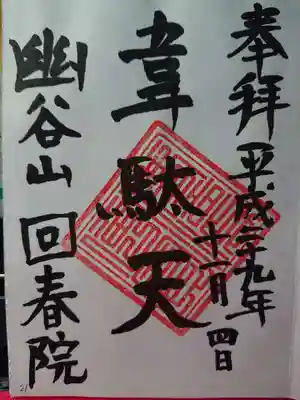 奉拝
平成二十九年
十一月四日
韋駄天
幽谷山回春院